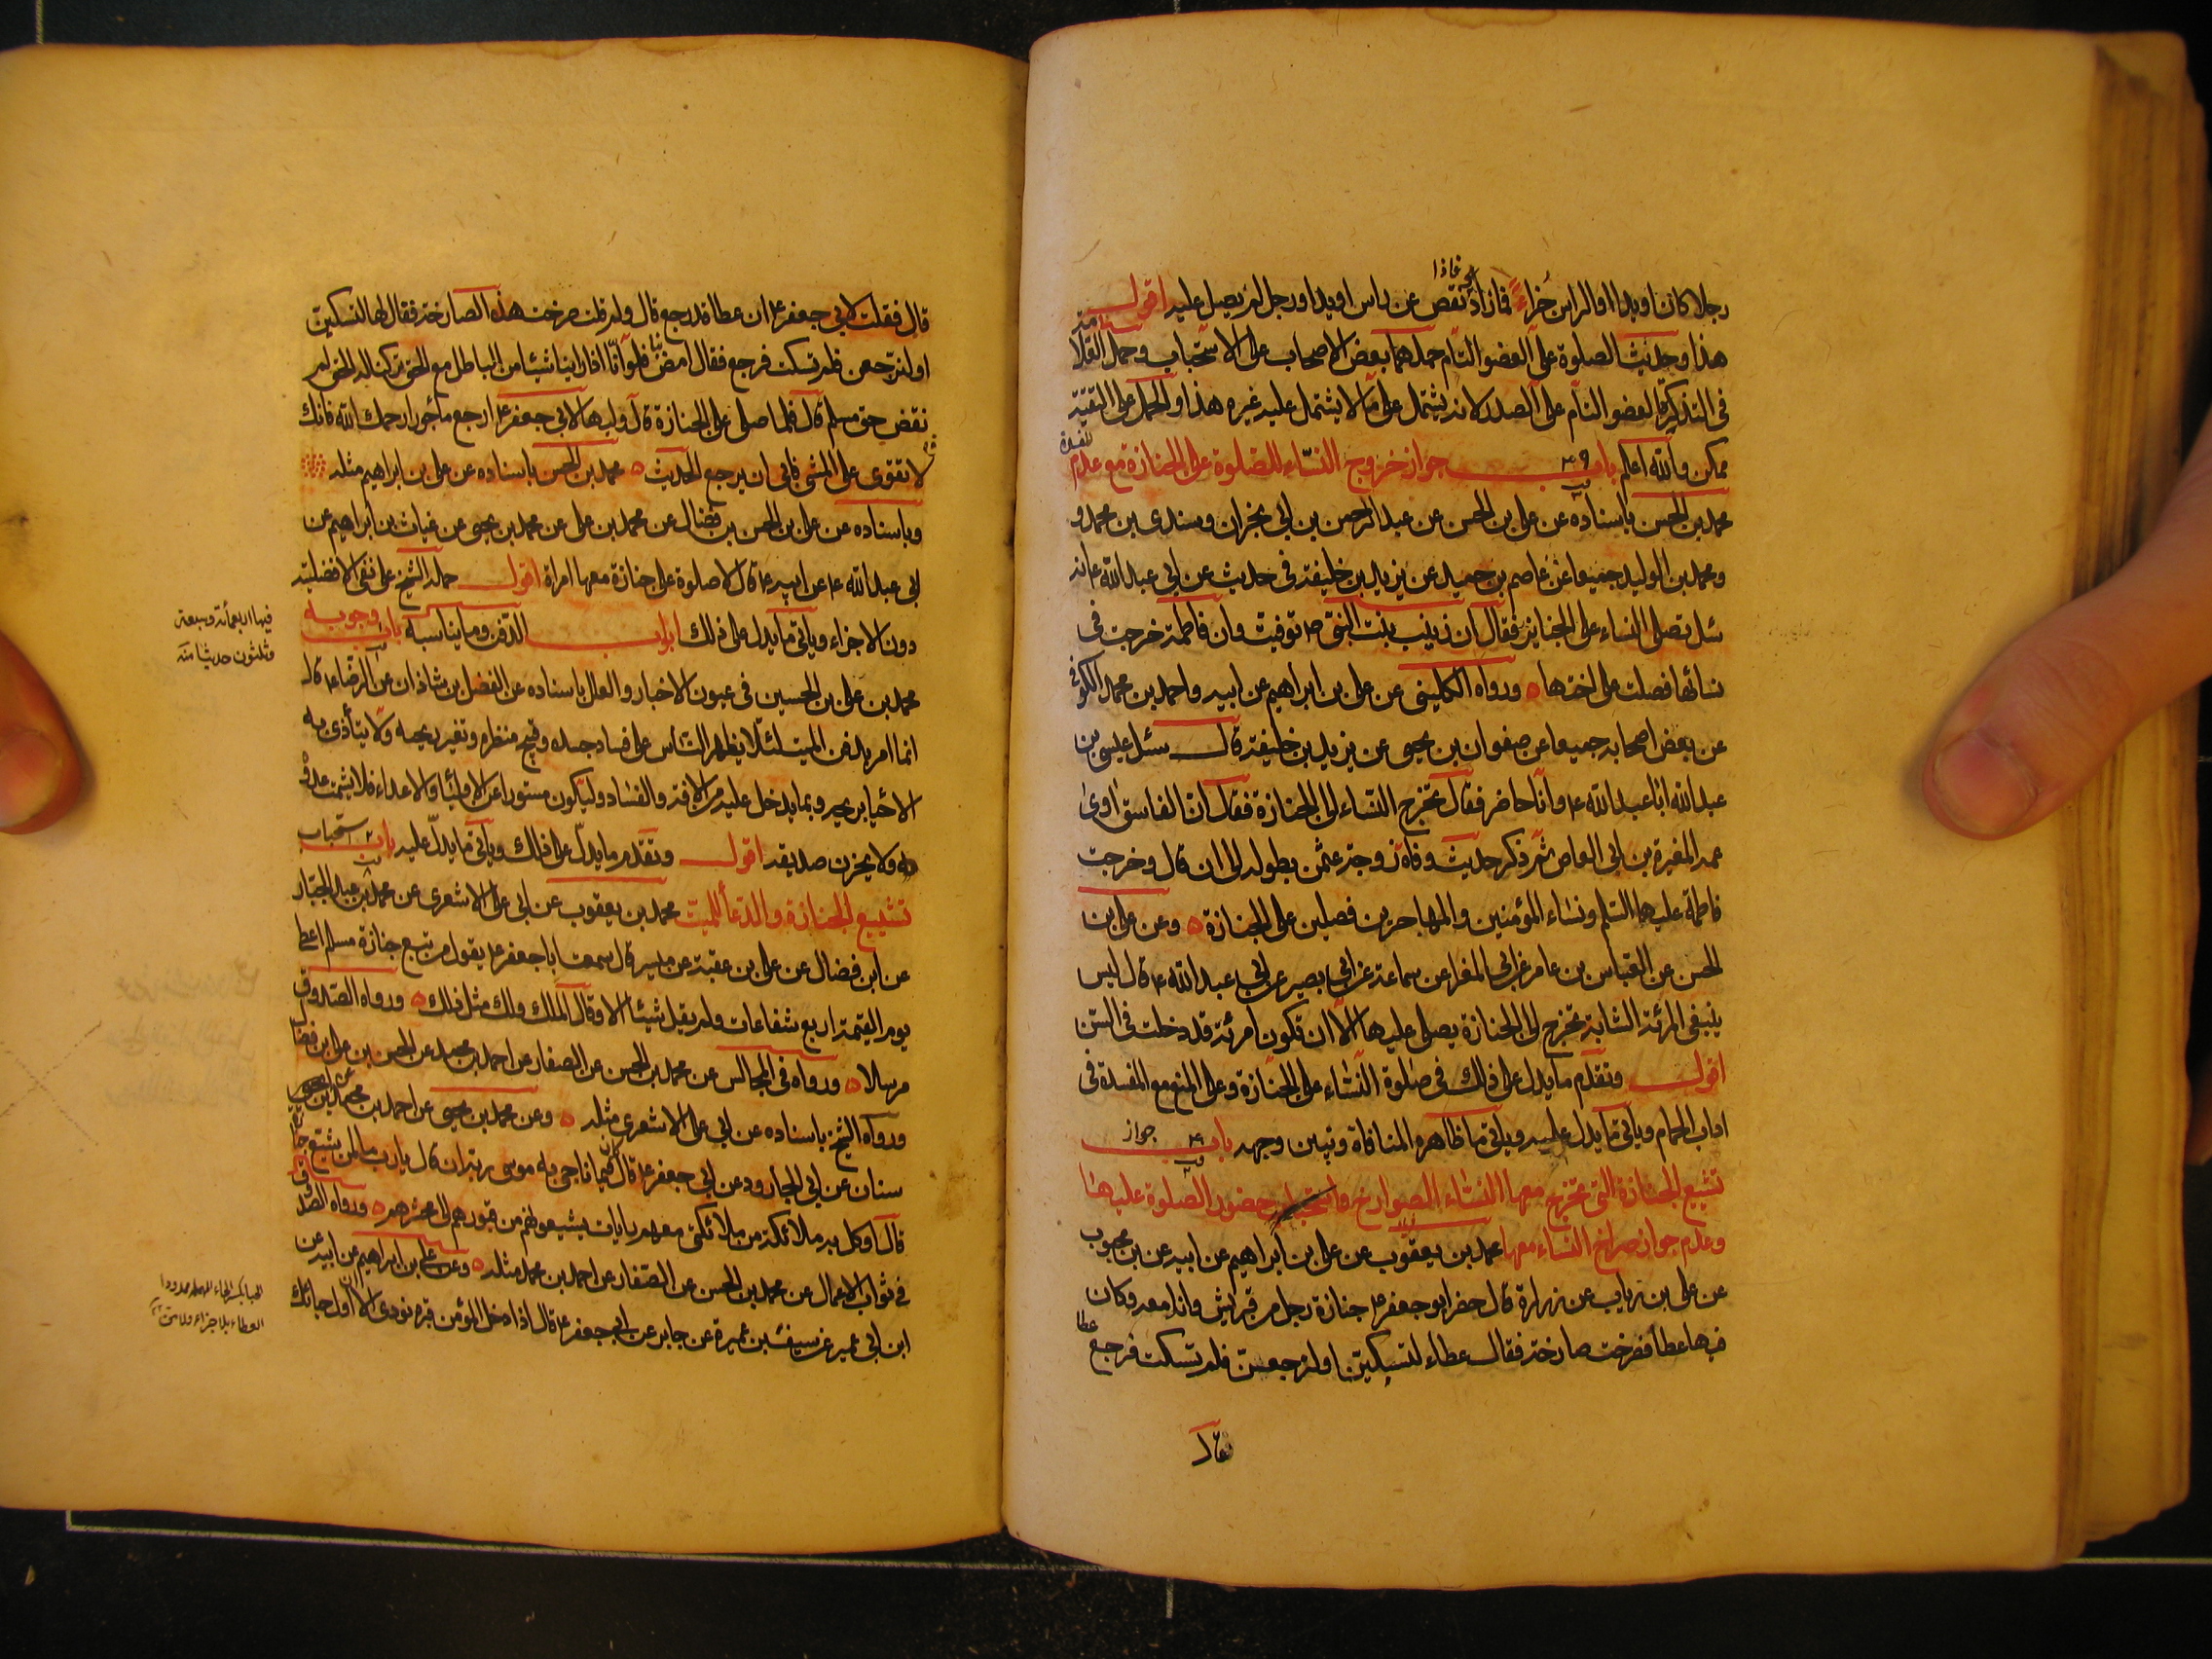 رجلا كان او يدا او الراس جزاء فما زاد فاذا نقص عن راس او يد او رجل لم يصل عليه اقول
هذا وحديث الصلوة على العضو التام حملهما بعض الاصحاب على الاستحباب وحمل العلامة
في التذكرة العضو التام على الصدر لانه يشتمل على ما لا يشتمل عليه غيره هذا والحمل على التقية
ممكن والله اعلم باب ٣٩ جواز خروج النساء للصلوة على الجنازة مع عدم المفسدة
محمد بن الحسن باسناده عن على بن الحسن عن عبد الرحمن بن ابي نجران وسندى بن محمد و
ومحمد بن الوليد جميعا عن عاصم بن حميد عن يزيد بن خليفة في حديث عن ابي عبد الله ع انه
سئل تصلى النساء على الجنايز فقال ان زينب بنت النبي ص توفيت وان فاطمة خرجت في
نسائها فصلت على اختها ورواه الكليني عن على بن ابراهيم عن ابيه واحمد بن محمد الكوفي
عن بعض اصحابه جميعا عن صفوان بن يحيى عن يزيد بن خليفة قال سئل عيسى بن
عبد الله ابا عبد الله ع وانا حاضر فقال تخرج النساء الى الجنازة فقال ان الفاسق اوى
عمه المغيرة بن ابي العاص ثم ذكر حديث وفاة زوجة عثمن بطوله الى ان قال وخرجت
فاطمة عليها السلم ونساء المؤمنين والمهاجرين فصلين على الجنازة وعن على بن
الحسن عن العباس بن عامر عن ابي المغرا عن سماعة عن ابي بصير عن ابي عبد الله ع قال ليس
ينبغي المرئة الشابة تخرج الى الجنازة يصلى عليها الا ان تكون امرئة قد دخلت في السن
اقول وتقدم ما يدل على ذلك في صلوة النساء على الجنازة وعلى المنع مع المفسدة في
اداب الحمام وياتي ما يدل عليه وياتي ما ظاهره المنافاة ونبين وجهه باب جواز
تشييع الجنازة التي تخرج معها النساء الصوارخ واستحباب حضور الصلوة عليها
وعدم جواز صراخ النساء معها محمد بن يعقوب عن على بن ابراهيم عن ابيه عن بن محبوب
عن على بن رياب عن زرارة قال حضر ابو جعفر ع جنازة رجل من قريش وانا معه وكان
فيها عطا فصرخت صارخة فقال عطاء لتسكتين او لنرجعن فلم تسكت فرجع عطا
فقال
قال فقلت لابي جعفر ع ان عطا قد رجع قال ولم قلت صرخت هذه الصارخة فقال لها لتسكتين
او لنرجعن فلم تسكت فرجع فقال امض بنا فلو انا اذا راينا شيئا من الباطل مع الحق تركنا له الحق لم
نقض حق مسلم قال فلما صلى على الجنازة قال وليها لابي جعفر ع ارجع ماجورا رحمك الله فانك
لا تقوى على المشي فابى ان يرجع الحديث محمد بن الحسن باسناده عن على بن ابراهيم مثله
وباسناده عن على بن الحسن بن فضال عن محمد بن على عن محمد بن يحيى عن غياث بن ابراهيم عن
ابي عبد الله ع عن ابيه ع قال لا صلوة على جنازة معها امراة اقول حمله الشيخ على نفى الافضلية
دون الاجزاء وياتي ما يدل على ذلك ابواب الدفن وما يناسبه باب وجوبه
فيها اربعمائة وسبعة
وثلثون حديثا منه
محمد بن على بن الحسين في عيون الاخبار والعلل باسناده عن الفضل بن شاذان عن الرضا ع قال
انما امر بدفن الميت لئلا يظهر الناس على فساد جسده وقبح منظره وتغير ريحه ولا يتأذى به
الاحياء بريحه وبما يدخل عليه من الافة والفساد وليكون مستورا عن الاولياء والاعداء فلا يشمت عدو
له ولا يحزن صديقه اقول وتقدم ما يدل على ذلك وياتي ما يدل عليه باب ٢ استحباب
تشييع الجنازة والدعأ للميت محمد بن يعقوب عن ابي على الاشعرى عن محمد بن عبد الجبار
عن ابن فضال عن على بن عقبة عن ميسر قال سمعت ابا جعفر ع يقول من تبع جنازة مسلم اعطى
يوم القيمة اربع شفاعات ولم يقل شيئا الا وقال الملك ولك مثل ذلك ورواه الصدوق
مرسلا ورواه في المجالس عن محمد بن الحسن عن الصفار عن احمد بن محمد عن الحسن بن على بن فضال
ورواه الشيخ باسناده عن ابي على الاشعرى مثله وعن محمد بن يحيى عن احمد بن محمد عن محمد بن
سنان عن ابي الجارود عن ابي جعفر ع قال كان فيما ناجى به موسى ربه ان قال يا رب ما لمن يشيع جنازة
قال اوكل به ملائكة من ملائكتى معهم رايات يشيعونهم من قبورهم الى محشرهم ورواه الصدوق
في ثواب الاعمال عن محمد بن الحسن عن الصفار عن احمد بن محمد مثله وعن على بن ابراهيم عن ابيه عن
ابن ابي عمير عن سيف بن عميرة عن جابر عن ابي جعفر ع قال اذا دخل المؤمن قبره نودى الا ان اول حبائك
الحبا بكسر الحاء المهملة ممدودا
العطاء بلا جزاء ولا من